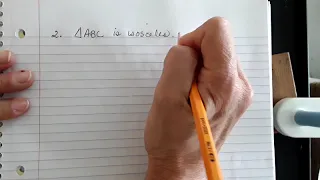 2. ΔABC is isosceles.